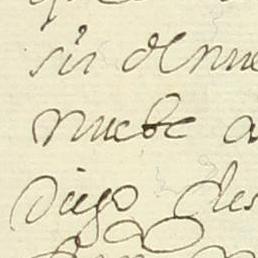 sin de nue
nuebe a
Diego des